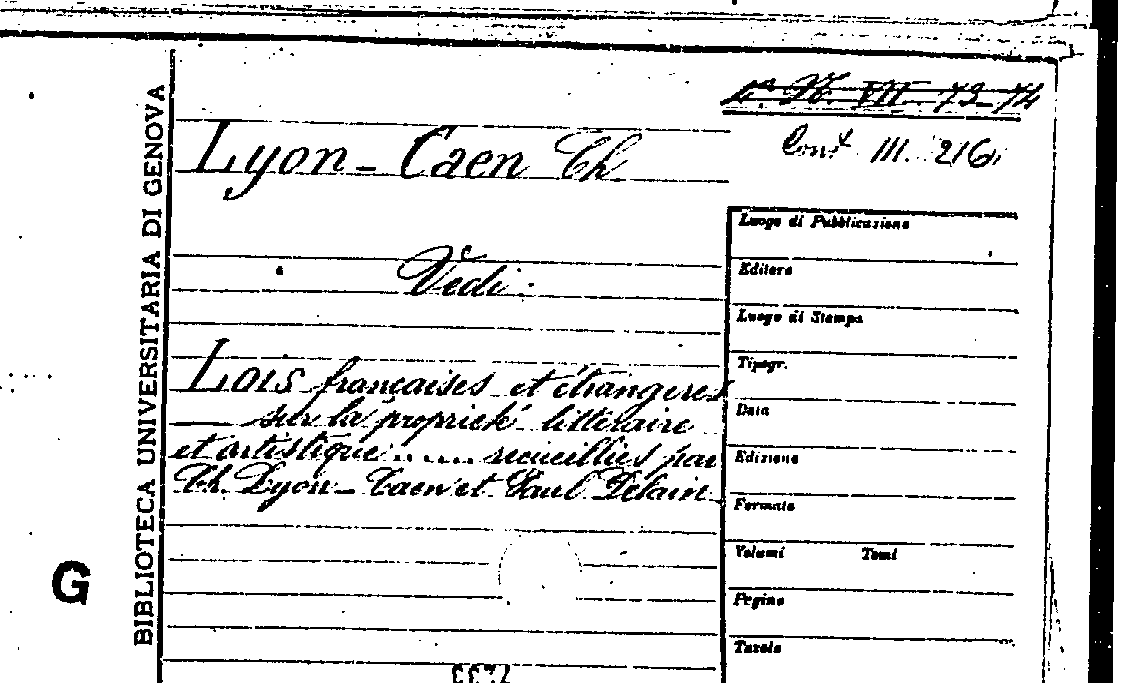 Lyon-Caen Ch
Cons III. 216
Vedi:
Lois françaises et étrangeres
sur la proprieté littéraire
et artistique ...... recueillies par
Ch. Lyon-Caen et Paul Delain
BIBLIOTECA UNIVERSITARIA DI GENOVA
G
Luogo di Pubblicazione
Editore
Luogo di Stampa
Tipogr.
Data
Edizione
Formato
Volumi Tomi
Pagine
Tavole